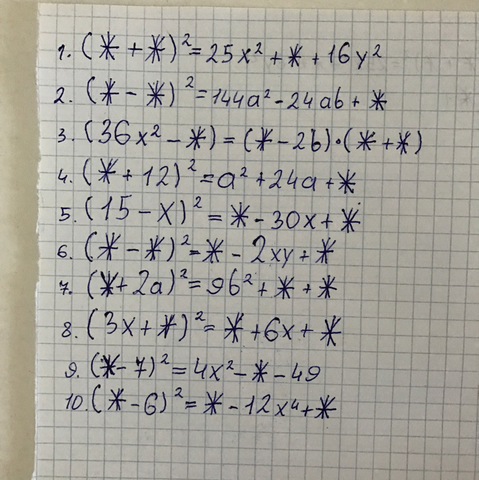 1. (* + *)² = 25x² + * + 16y²
2. (* - *)² = 144a² - 24ab + *
3. (36x² - *) = (* - 2b) · (* + *)
4. (* + 12)² = a² + 24a + *
5. (15 - x)² = * - 30x + *
6. (* - *)² = * - 2xy + *
7. (* + 2a)² = 9b² + * + *
8. (3x + *)² = * + 6x + *
9. (* - 7)² = 4x² - * - 49
10. (* - 6)² = * - 12x⁴ + *